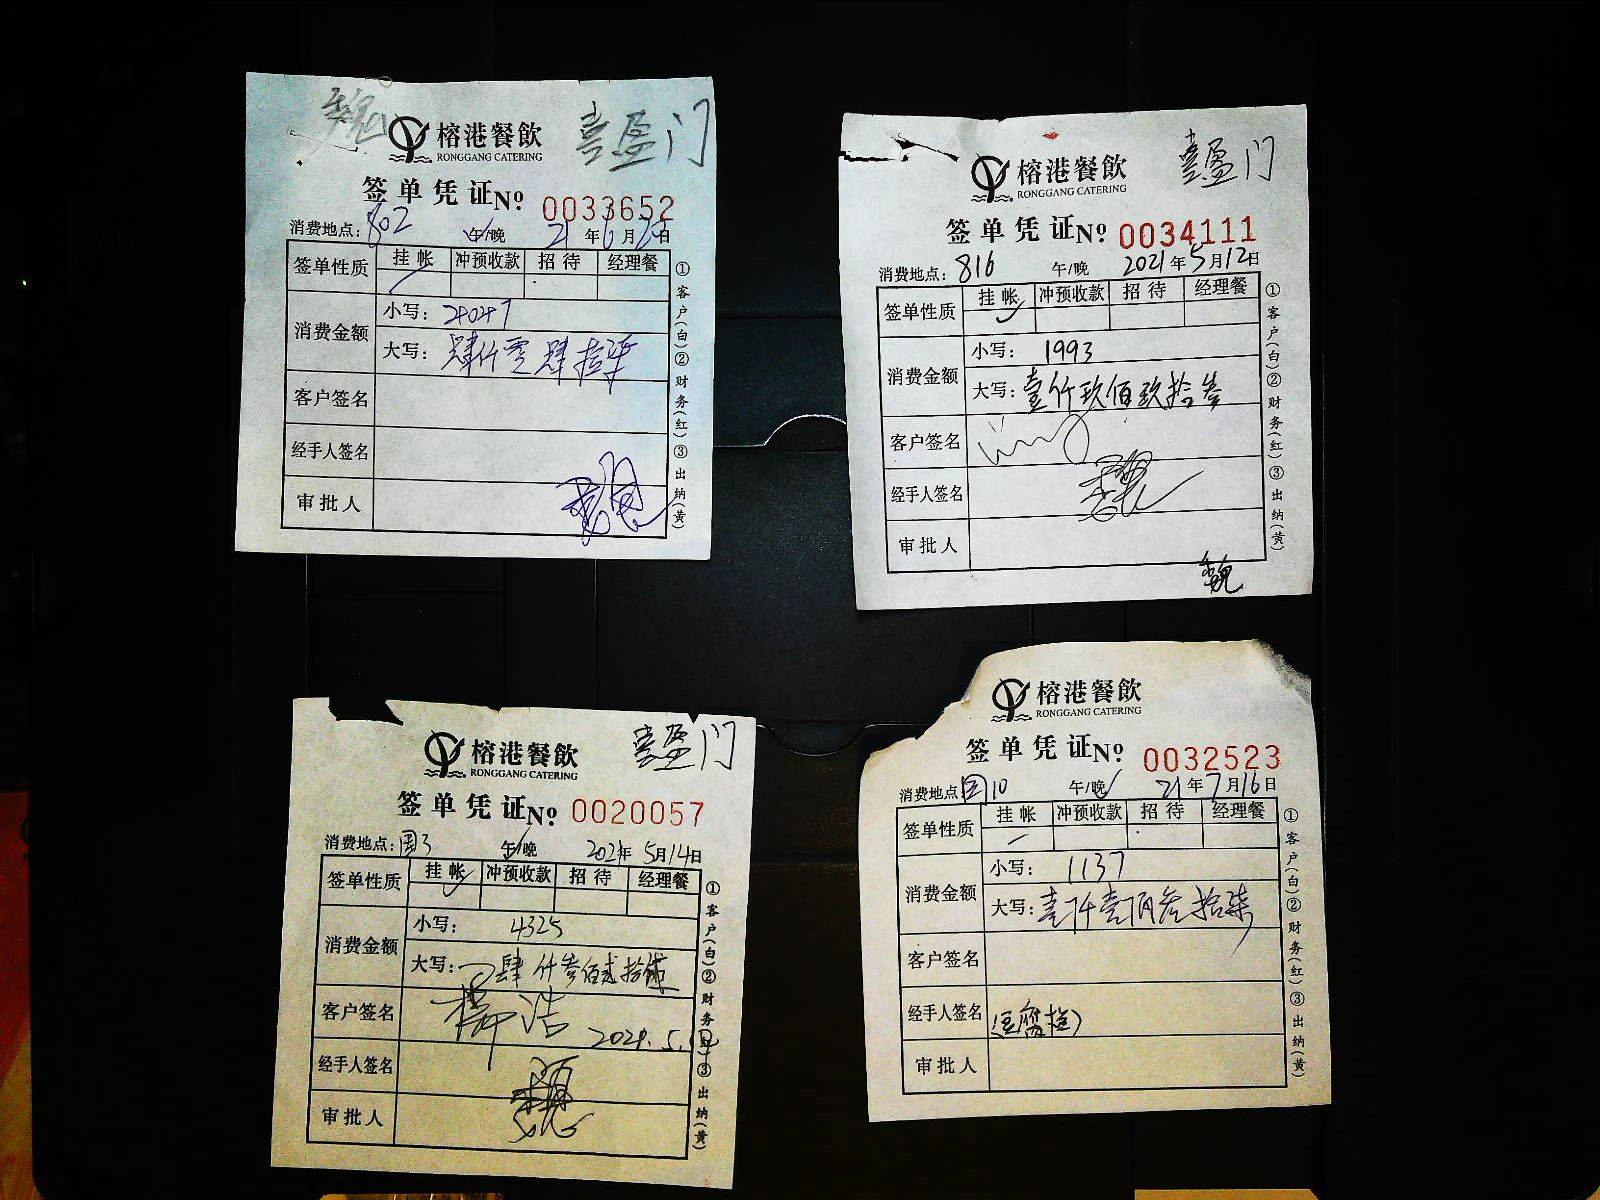 魏
榕港餐飲
RONGGANG CATERING
喜盈门
签单凭证 Nº 0033652
消费地点: 802 午/晚 21年6月 日
签单性质 挂帐 冲预收款 招待 经理餐
消费金额 小写: 4047
大写: 肆仟零肆拾柒
客户签名
经手人签名
审批人
①客户(白)②财务(红)③出纳(黄)
榕港餐飲
RONGGANG CATERING
喜盈门
签单凭证 Nº 0034111
消费地点: 816 午/晚 2021年5月12日
签单性质 挂帐 冲预收款 招待 经理餐
消费金额 小写: 1993
大写: 壹仟玖佰玖拾叁
客户签名
经手人签名
审批人
魏
①客户(白)②财务(红)③出纳(黄)
榕港餐飲
RONGGANG CATERING
喜盈门
签单凭证 Nº 0020057
消费地点: 国3 午/晚 2021年5月14日
签单性质 挂帐 冲预收款 招待 经理餐
消费金额 小写: 4325
大写: 肆仟叁佰贰拾伍
客户签名 2021.5.
经手人签名
审批人
①客户(白)②财务(红)③出纳(黄)
榕港餐飲
RONGGANG CATERING
签单凭证 Nº 0032523
消费地点: 国10 午/晚 21年7月16日
签单性质 挂帐 冲预收款 招待 经理餐
消费金额 小写: 1137
大写: 壹仟壹佰叁拾柒
客户签名
经手人签名
审批人
①客户(白)②财务(红)③出纳(黄)